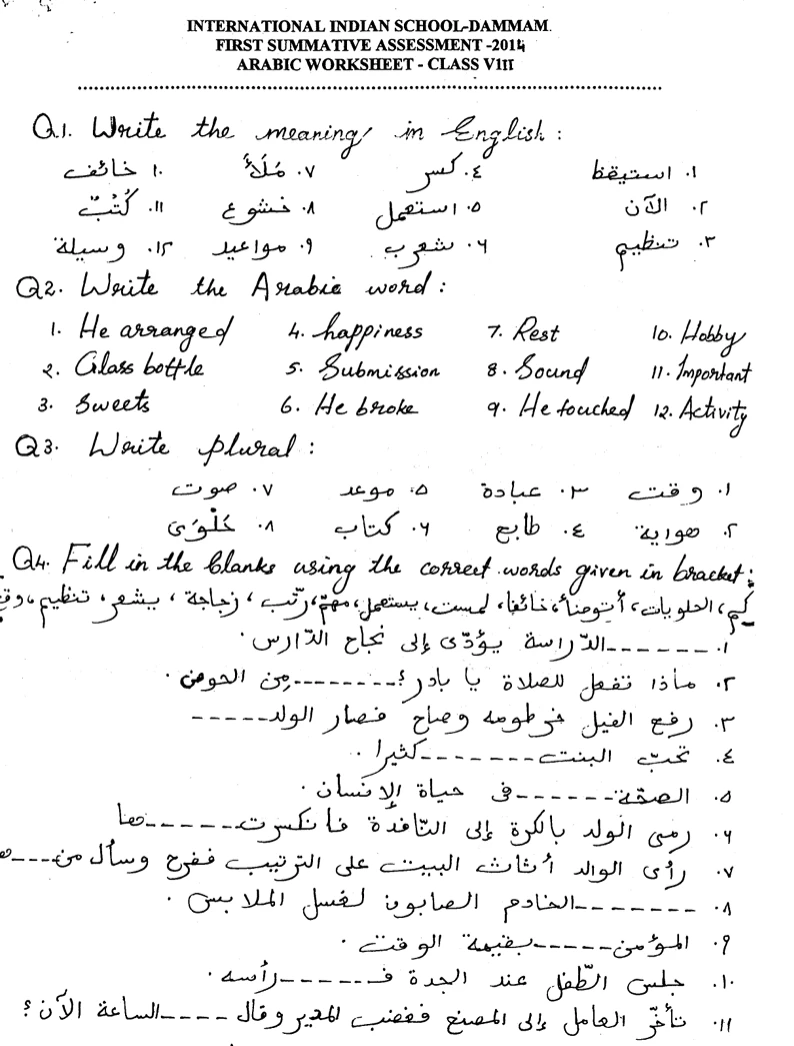 INTERNATIONAL INDIAN SCHOOL-DAMMAM.
FIRST SUMMATIVE ASSESSMENT -2014
ARABIC WORKSHEET - CLASS V1II
Q1. Write the meaning in English :
١. استيقظ ٤. كسر ٧. مُلَأ ١٠. خائف
٢. الآن ٥. استعمل ٨. خشوع ١١. كُتُبٌ
٣. تنظيم ٦. شعر ب ٩. مواعيد ١٢. وسيلة
Q2. Write the Arabic word :
1. He arranged 4. happiness 7. Rest 10. Hobby
2. Glass bottle 5. Submission 8. Sound 11. Important
3. Sweets 6. He broke 9. He touched 12. Activity
Q3. Write plural :
١. وقت ٣. عبادة ٥. موعد ٧. صوت
٢. هواية ٤. طابع ٦. كتاب ٨. حَلْوَى
Q4. Fill in the blanks using the correct words given in bracket :
كم، الحلويات، أتوضأ، خائفا، لمست، يستعمل، مهمّ، رتّب، زجاجة، يشعر، تنظيم،
١. ------- الدّراسة يؤدّى إلى نجاح الدّارس.
٢. ماذا تفعل للصلاة يا بادر؟ -------- مِن الحوض.
٣. رفع الفيل خرطومه وصاح فصار الولد -----
٤. تحبّ البنت ------- كثيرا.
٥. الصحّة ------ فى حياة الإنسان.
٦. رمى الولد بالكرة إلى النّافدة فانكسرت ------ ها
٧. رأى الوالد أثاث البيت على الترتيب ففرح وسأل من ----
٨. ------- الخادم الصابون لغسل الملابس.
٩. المؤمن ----- بقيمة الوقت.
١٠. جلس الطّفل عند الجدة فـ ------ رأسه.
١١. تأخّر العامل إلى المصنع فغضب المدير وقال ---- الساعة الآن؟